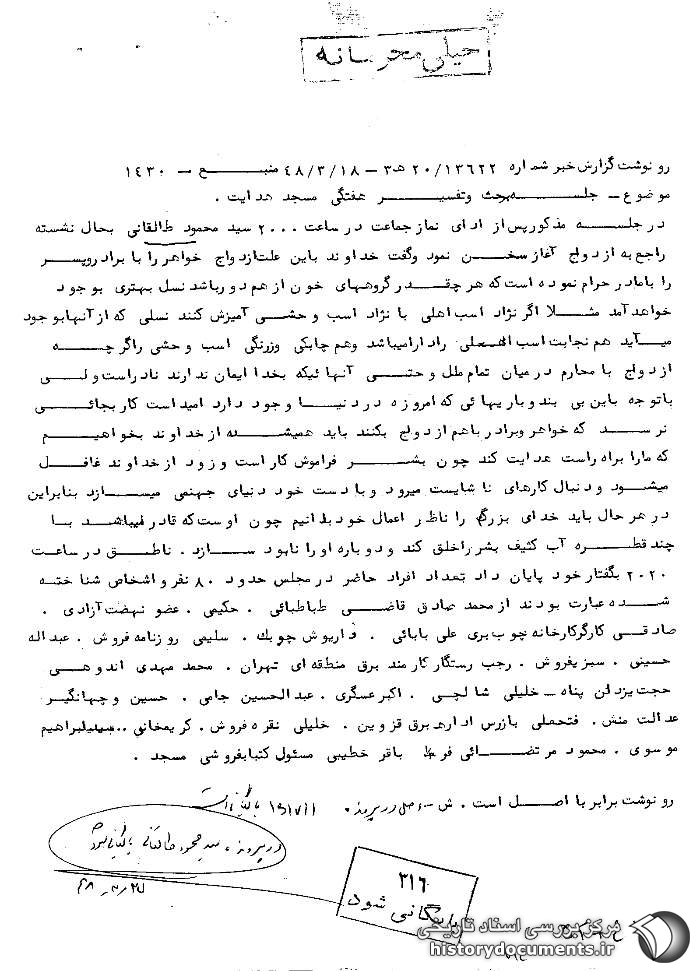 خیلی محرمانه
رو نوشت گزارش خبر شماره ۲۰/۱۳۶۲۲ ه‍۳ – ۴۸/۳/۱۸ منبـــــع – ۱۴۳۰
موضوع – جلســـه بحث وتفسیـــر هفتگی مسجد هدایت .
در جلســه مذکور پس از ادای نماز جماعت در ساعت ۲۰۰۰ سید محمود طالقانی بحال نشسته
راجع به ازدواج آغاز سخـــن نمود وگفت خداوند باین علت ازدواج خواهر را با برادر وپســر
را بامادر حرام نموده است که هر چقـــدر گروههای خون از هم دور باشد نسل بهتری بوجود
خواهد آمد مثــلا اگر نژاد اسب اهلی با نژاد اسب وحشــی آمیزش کنند نسلی که از آنها بوجود
میــآید هم نجابت اسب اهلی را دارا میباشد وهم چابکی وزرنگی اسب وحشی را گر چـــه
ازدواج با محارم در میان تمام ملل و حتـــی آنهائیکه بخدا ایمان ندارند نادر است ولـــی
باتوجه باین بی بند وباریهائی که امروزه در دنیـــا وجود دارد امید است کار بجائـــی
نرســـد که خواهر وبرادر باهم ازدواج بکنند باید همیشـــه از خداوند بخواهیـــم
که مارا براه راست هدایت کند چون بشـــر فراموش کار است وزود از خداوند غافـــل
میشــود ودنبال کارهای ناشایست میرود وبا دست خود دنیای جهنمی میســـازد بنابراین
در هر حال باید خدای بزرگ را ناظر اعمال خود بدانیم چون اوست که قادر میباشـــد بـــا
چند قطـــره آب کثیف بشر راخلق کند ودوباره اورا نابود ســـازد . ناطـــق در ساعت
۲۰۲۰ بگفتار خود پایان داد تعداد افراد حاضر در مجلس حدود ۸۰ نفر واشخاص شناختـــه
شـــده عبارت بودند از محمد صادق قاضـــی طباطبائی . حکیمی . عضو نهضت آزادی .
صادقـــی کارگر کارخانه چوب بری علی بابائی . داریوش چوبك . سلیمی روزنامه فروش . عبداله
حسینی . سبزیفروش . رجب رستگار کارمند برق منطقه ای تهران . محمد مهدی اندوهـــی
حجت یزدان پناه – خلیلی شالچی . اکبر عسگری . عبدالحسین جامی . حسین وجهانگیـــر
عدالت منش . فتحعلی بازرس اداره برق قزوین . خلیلی نقره فروش . کریمخانی .. سید ابراهیم
موسوی . محمود مرتضـــائی فر باقر خطیبی مسئول کتابفروشی مسجد .
رونوشت برابر با اصل است . ش – اصل در پرونده ۱۵۱۷۱۱ بایگانی است
در پرونده سید محمود طالقانی بایگانی شود
۴۸/۳/۲۷
۳۱۶
بایگانی شود
مرکز بررسی اسناد تاریخی
historydocuments.ir